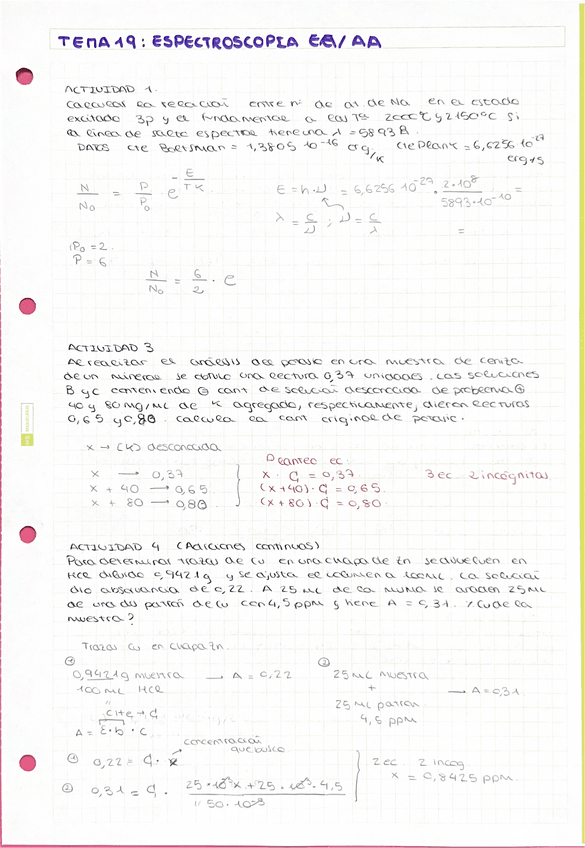 TEMA 19: ESPECTROSCOPIA EE/AA
ACTIVIDAD 1.
Calcular la relación entre nº de at de Na en el estado
excitado 3p y el fundamental a las Tª 2000ºC y 2150ºC si
la línea de salte espectral tiene una λ = 5893 Å.
DATOS cte Boltsman = 1,3805 10⁻¹⁶ erg/K cte Plank = 6,6256 10⁻²⁷ erg·s
N/N₀ = P/P₀ e^(-E/TK)
E = h·ν = 6,6256 10⁻²⁷ · 2·10⁸ / 5893·10⁻¹⁰ =
λ = c/ν ; ν = c/λ
=
P₀ = 2.
P = 6
N/N₀ = 6/2 · e
ACTIVIDAD 3
Al realizar el análisis del potasio en una muestra de ceniza
de un mineral se obtuvo una lectura 0,37 unidades. Las soluciones
B y C conteniendo = cant de solución desconocida de problema ⊕
40 y 80 mg/mL de K agregado, respectivamente, dieron lecturas
0,65 y 0,80. Calcula la cant original de potasio.
x → [K] desconocida
x → 0,37
x + 40 → 0,65
x + 80 → 0,80
Plantec ec:
x · C = 0,37
(x+40) · C = 0,65.
(x+80) · C = 0,80.
3 ec 2 incógnitas
ACTIVIDAD 4 (Adiciones continuas)
Para determinar trazas de Cu en una chapa de Zn se disuelven en
HCl diluido 0,9421g y se ajusta el volumen a 100mL. La solución
dio absorvancia de 0,22. A 25 mL de la misma se añaden 25 mL
de una dis patrón de Cu con 4,5 ppm y tiene A = 0,31. % Cu de la
muestra?
Trazas Cu en chapa Zn.
①
0,9421g muestra → A = 0,22
100 mL HCl
②
25 mL muestra
+
25 mL patron
4,5 ppm
→ A = 0,31
cte → C
A = ε · b · c
concentración
que busco
① 0,22 = C · x
② 0,31 = C · 25 · 10⁻³x + 25 · 10⁻³ · 4,5 / 50 · 10⁻³
2 ec 2 incog
x = 0,8425 ppm.